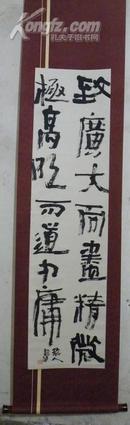 致廣大而盡精微
極高明而道中庸
Kongfz.com
孔夫子旧书网